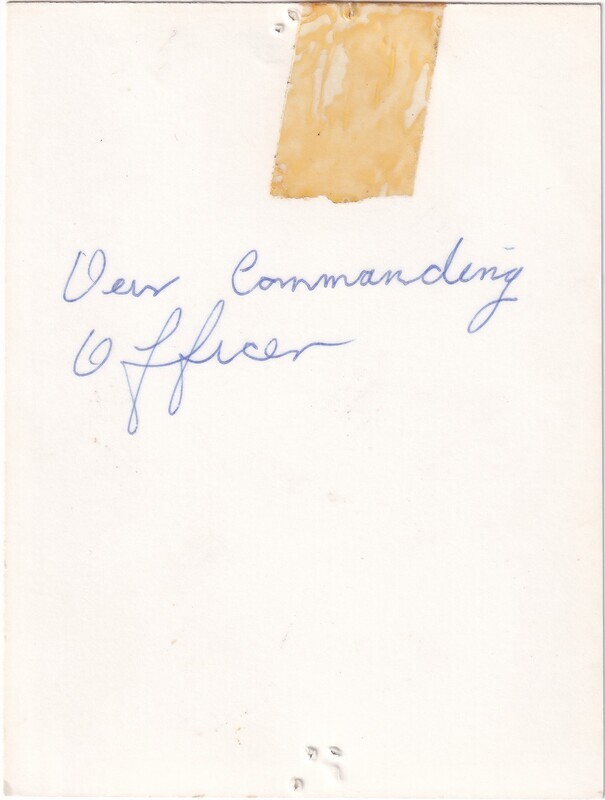 Our Commanding
Officer